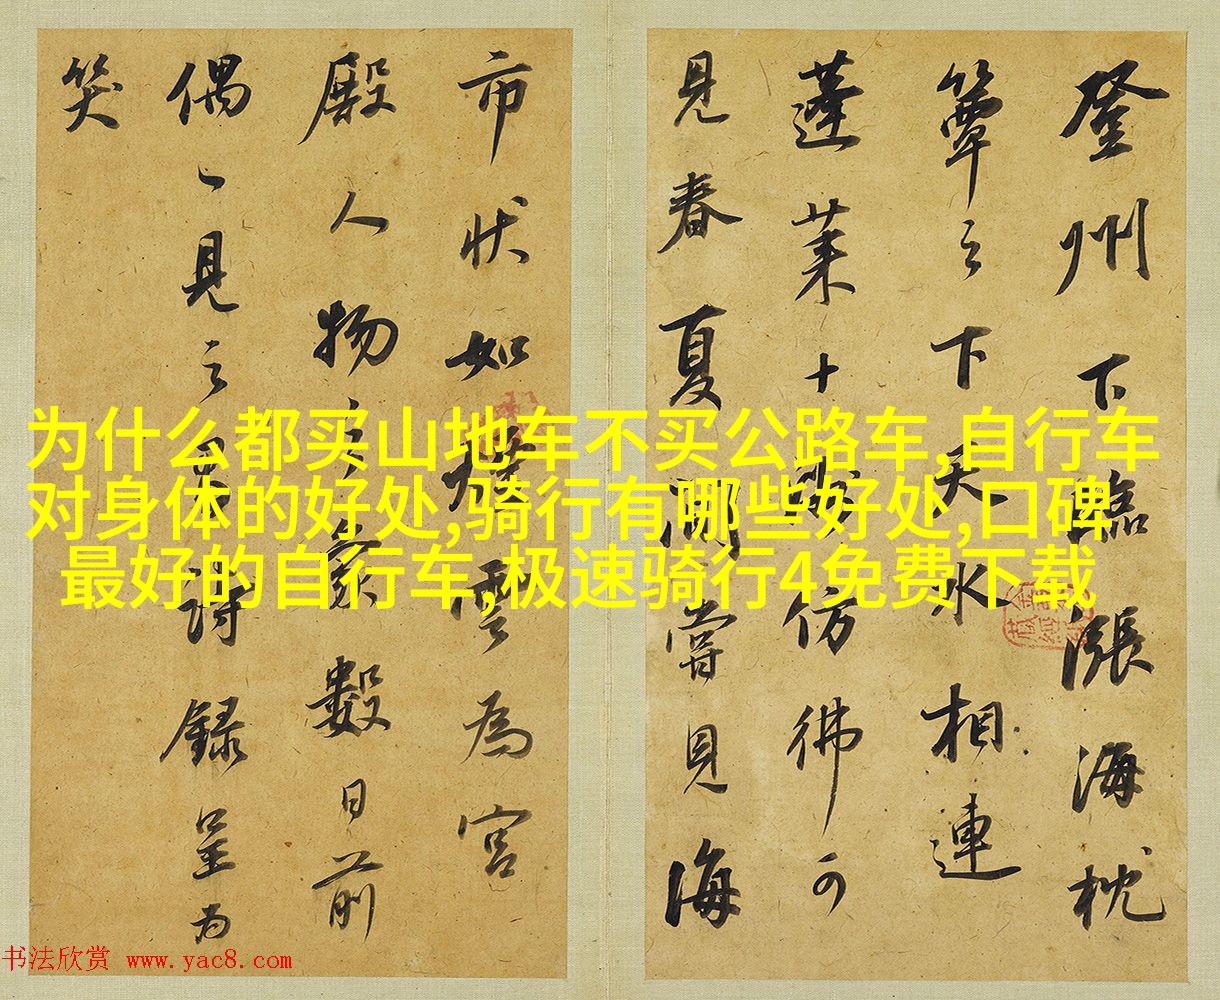 登州下臨漲海枕
簟之下天水相連
蓬莱十仿彿可
見春夏間嘗見海
市状如雲為宮
殿人物之象數日前
偶一見之詩録呈為
笑
为什么都买山地车不买公路车,自行车
对身体的好处,骑行有哪些好处,口碑
最好的自行车,极速骑行4免费下载
书法欣赏 www.yac8.com